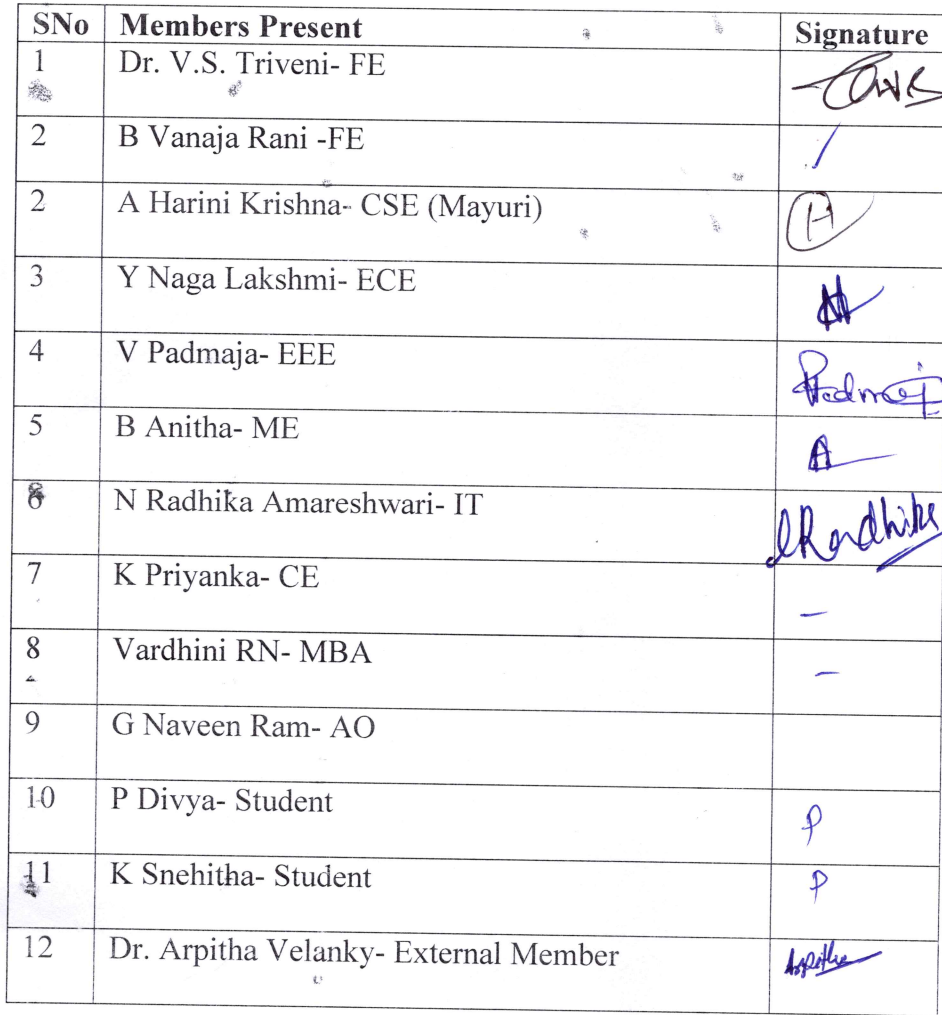 SNo Members Present Signature
1 Dr. V.S. Triveni- FE
2 B Vanaja Rani -FE /
2 A Harini Krishna- CSE (Mayuri) H
3 Y Naga Lakshmi- ECE
4 V Padmaja- EEE Padmaja
5 B Anitha- ME A
6 N Radhika Amareshwari- IT Radhika
7 K Priyanka- CE -
8 Vardhini RN- MBA -
9 G Naveen Ram- AO
10 P Divya- Student P
11 K Snehitha- Student P
12 Dr. Arpitha Velanky- External Member Arpitha